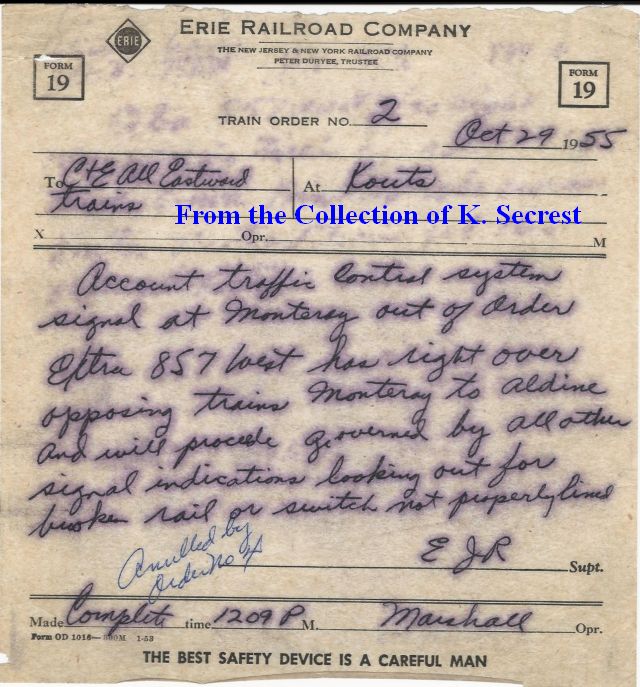 ERIE
ERIE RAILROAD COMPANY
THE NEW JERSEY & NEW YORK RAILROAD COMPANY
PETER DURYEE, TRUSTEE
FORM
19
FORM
19
TRAIN ORDER NO. 2
Oct 29 1955
To C+E All Eastward
trains
At Kouts
From the Collection of K. Secrest
X Opr. M
Account traffic Control system
signal at Monteray out of Order
Extra 857 West has right over
opposing trains Monteray to Aldine
and will procede governed by all other
signal indications looking out for
broken rail or switch not properly lined
Anulled by
Order No 4
E J R Supt.
Made Complete time 1209 P M. Marshall Opr.
Form OD 1016—500M 1-53
THE BEST SAFETY DEVICE IS A CAREFUL MAN